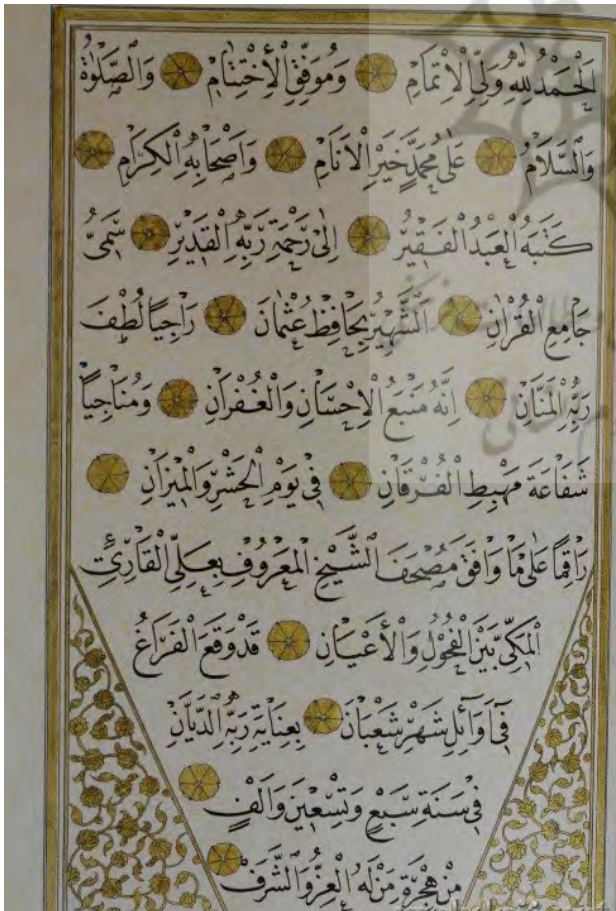 اَلْحَمْدُ لِلّٰهِ وَلِيِّ الْاِتْمَامِ وَمُوَفِّقِ الْاِخْتِتَامِ وَالصَّلٰوةُ
وَالسَّلَامُ عَلٰى مُحَمَّدٍ خَيْرِ الْاَنَامِ وَاَصْحَابِهِ الْكِرَامِ
كَتَبَهُ الْعَبْدُ الْفَقِيْرُ اِلٰى رَحْمَةِ رَبِّهِ الْقَدِيْرِ سَمِيُّ
جَامِعِ الْقُرْاٰنِ اَلشَّهِيْرُ بِحَافِظْ عُثْمَانَ رَاجِيًا لُطْفَ
رَبِّهِ الْمَنَّانِ اِنَّهُ مَنْبَعُ الْاِحْسَانِ وَالْغُفْرَانِ وَمُنَاجِيًا
شَفَاعَةَ مَهْبِطِ الْفُرْقَانِ فِى يَوْمِ الْحَشْرِ وَالْمِيْزَانِ
رَاقِمًا عَلٰى مَا وَافَقَ مُصْحَفَ الشَّيْخِ الْمَعْرُوْفِ بِعَلِىِّ الْقَارِئِ
الْمَكِّىِّ بَيْنَ الْفُحُوْلِ وَالْاَعْيَانِ قَدْ وَقَعَ الْفَرَاغُ
فِى اَوَائِلِ شَهْرِ شَعْبَانَ بِعِنَايَةِ رَبِّهِ الدَّيَّانِ
فِى سَنَةِ سَبْعٍ وَتِسْعِيْنَ وَاَلْفٍ
مِنْ هِجْرَةِ مَنْ لَهُ الْعِزُّ وَالشَّرَفُ